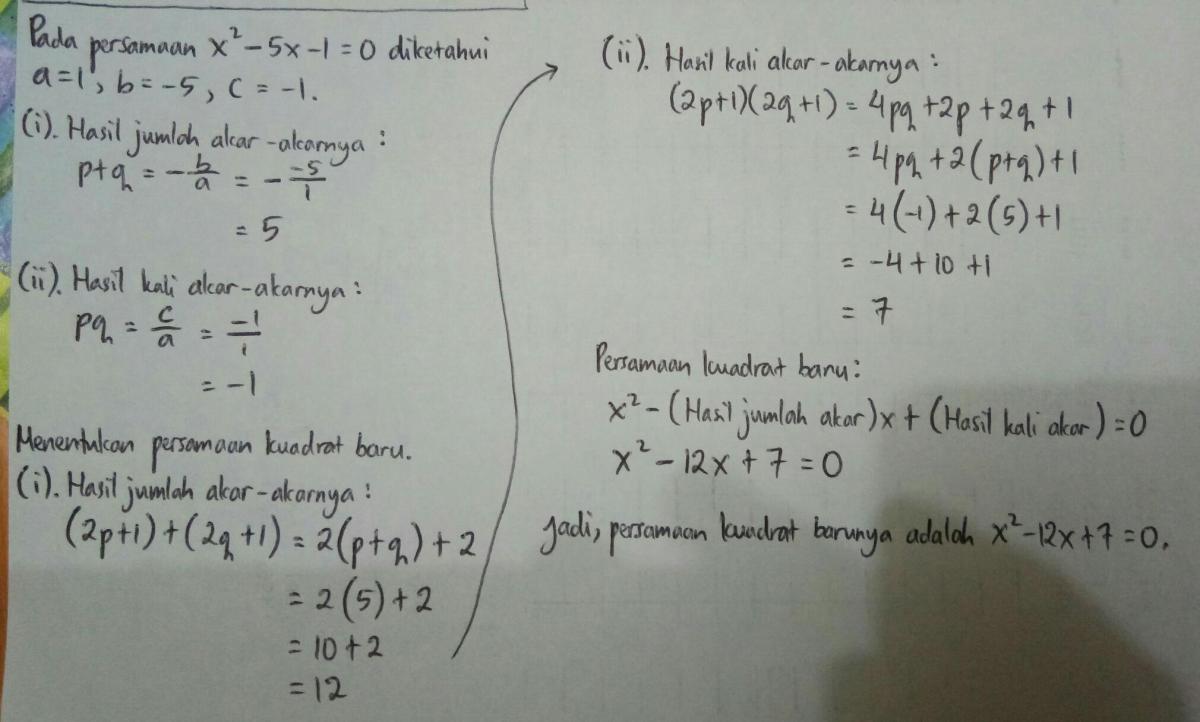 Pada persamaan x² - 5x - 1 = 0 diketahui
a = 1, b = -5, c = -1.
(i). Hasil jumlah akar-akarnya :
p+q = -b/a = - -5/1
= 5
(ii). Hasil kali akar-akarnya :
pq = c/a = -1/1
= -1
Menentukan persamaan kuadrat baru.
(i). Hasil jumlah akar-akarnya :
(2p+1)+(2q+1) = 2(p+q)+2
= 2(5)+2
= 10+2
= 12
(ii). Hasil kali akar-akarnya :
(2p+1)(2q+1) = 4pq +2p +2q +1
= 4pq +2(p+q)+1
= 4(-1)+2(5)+1
= -4+10+1
= 7
Persamaan kuadrat baru :
x² - (Hasil jumlah akar)x + (Hasil kali akar) = 0
x² - 12x + 7 = 0
Jadi, persamaan kuadrat barunya adalah x²-12x+7 = 0.